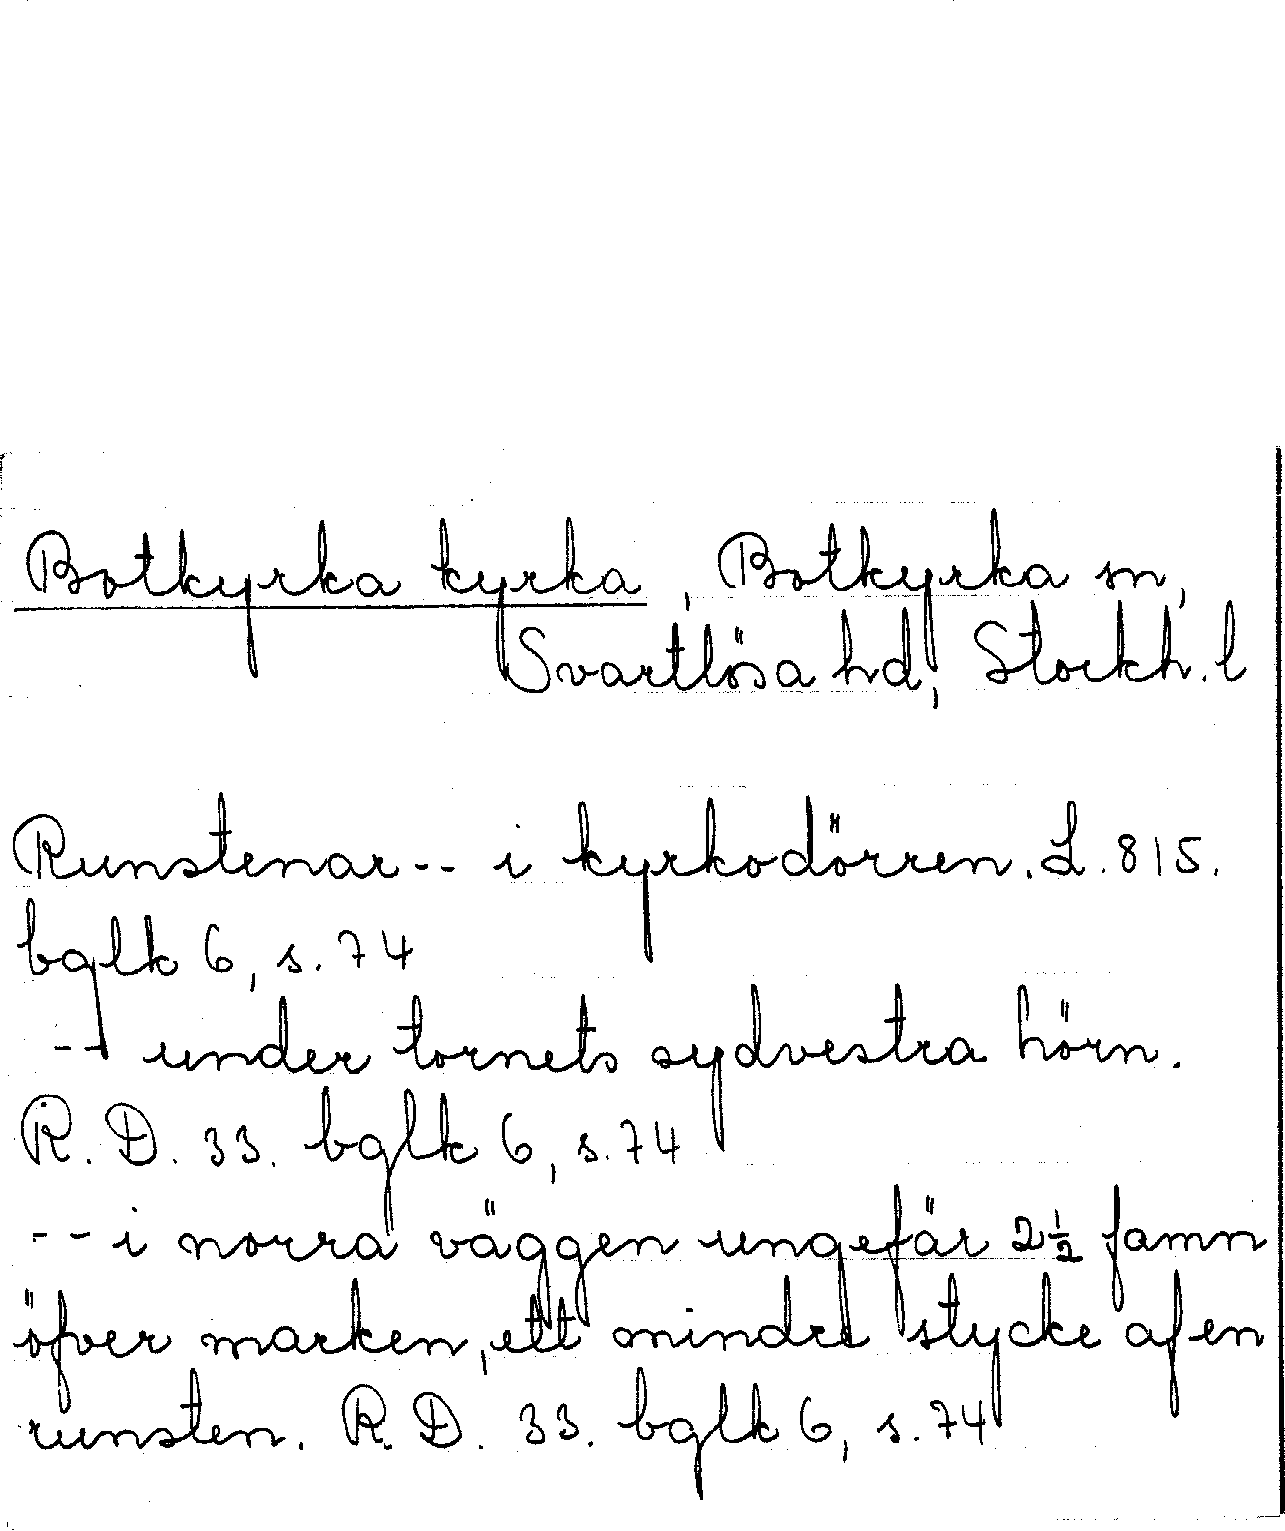 Botkyrka kyrka, Botkyrka sn,
Svartlösa hd, Stockh. l
Runstenar -- i kyrkodörren. L. 815.
bglk 6, s. 74
-- under tornets sydvestra hörn.
R. D. 33. bglk 6, s. 74
-- i norra väggen ungefär 2½ famn
öfver marken, ett mindre stycke af en
runsten. R. D. 33. bglk 6, s. 74